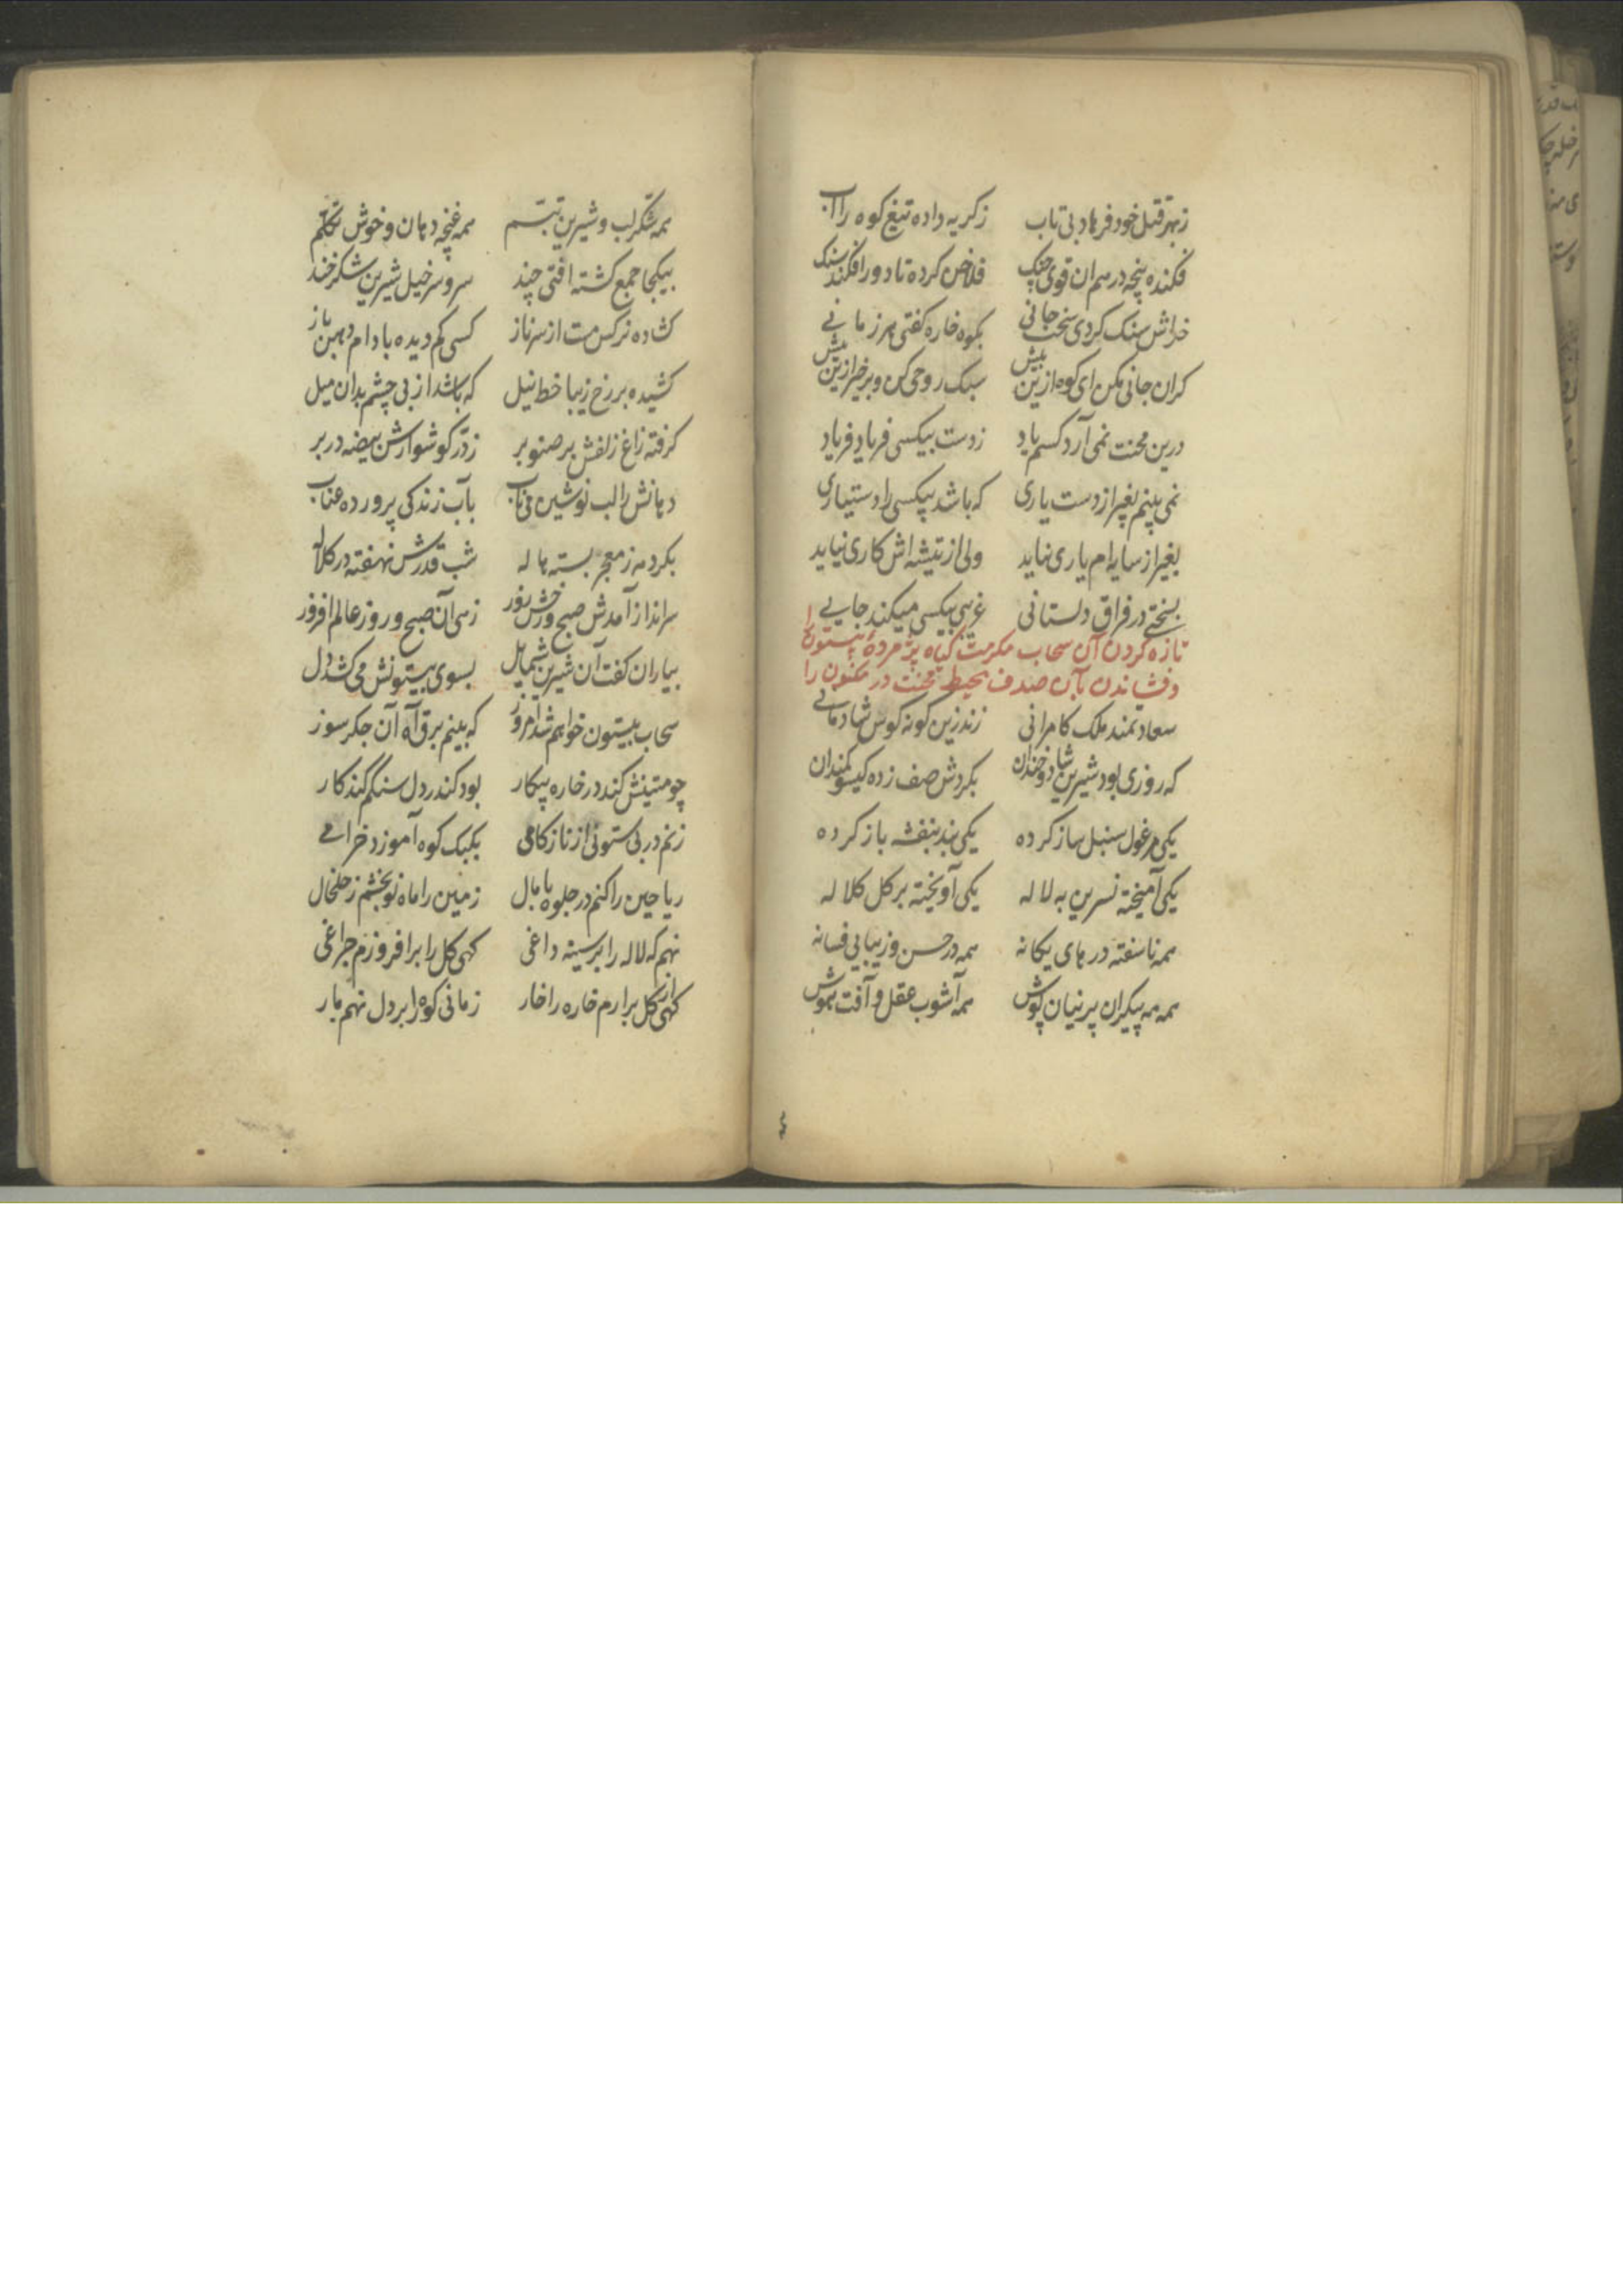 زبهر قتل خود فرهاد بی تاب زکریه داده تیغ کوه را آب
فکنده پنجه در هم ران قوی چنک فلاخن کرده تا دور افکند سنک
خراش سنک کردی سخت جانی بکوه خاره کفتی هر زمانی
کران جانی مکن ای کوه ازین بیش سبک روحی کن و برخیز ازین پیش
درین محنت نمی آرد کسم یاد زدست بیکسی فریاد فریاد
نمی بینم بغیر از دست یاری که باشد بیکسی را دستیاری
بغیر از سایه ام یاری نیاید ولی از تیشه اش کاری نیاید
بسختی در فراق دلستانی غریبی بیکسی میکند جانی
تازه کردن آن سحاب مکرمت کیاه پژمرده بیستون را
و فشاندن بآن صدف محیط محنت در مکنون را
سعادتمند ملک کامرانی زند زین کونه کوس شادمانی
که روزی بود شیرین شاد و خندان بکردش صف زده کیسو کمندان
یکی مرغول سنبل ساز کرده یکی بند بنفشه باز کرده
یکی آمیخته نسرین به لاله یکی آویخته بر کل کلاله
همه ناسفته درهای یکانه همه در حسن و زیبایی فسانه
همه مه پیکران پرنیان پوش همه آشوب عقل و آفت هوش
همه شکر لب و شیرین تبسم همه غنچه دهان و خوش تکلم
بیکجا جمع کشته افتی چند سر و سرخیل شیرین شکرخند
کشاده نرکس مست از سر ناز کسی کم دیده بادام دهن باز
کشیده بر رخ زیبا خط نیل که باشد از پی چشم بدان میل
کرفته زاغ زلفش بر صنوبر زدر کوشوارش بیضه در بر
دهانش را لب نوشین می ناب بآب زندکی پرورده عناب
بکرد مه زمعجر بسته هاله شب قدرش نهفته در کلاله
سرانداز آمدش صبح و رخش نور زهی آن صبح و روز عالم افروز
بیاران کفت آن شیرین شمایل بسوی بیستونش می کشد دل
سحاب بیستون خواهم شد امروز که بینم برق آه آن جکر سوز
چو متینش کند در خاره پیکار بود کندر دل سنکم کند کار
زنم در بی ستونی از ناز کامی بکبک کوه آموزد خرامی
ریاحین را کنم در جلوه پامال زمین را ماه نو بخشم زخلخال
نهم که لاله را بر سینه داغی کهی کل را برافروزم چراغی
کهی از کل برارم خاره را خار زمانی کوه را بر دل نهم بار